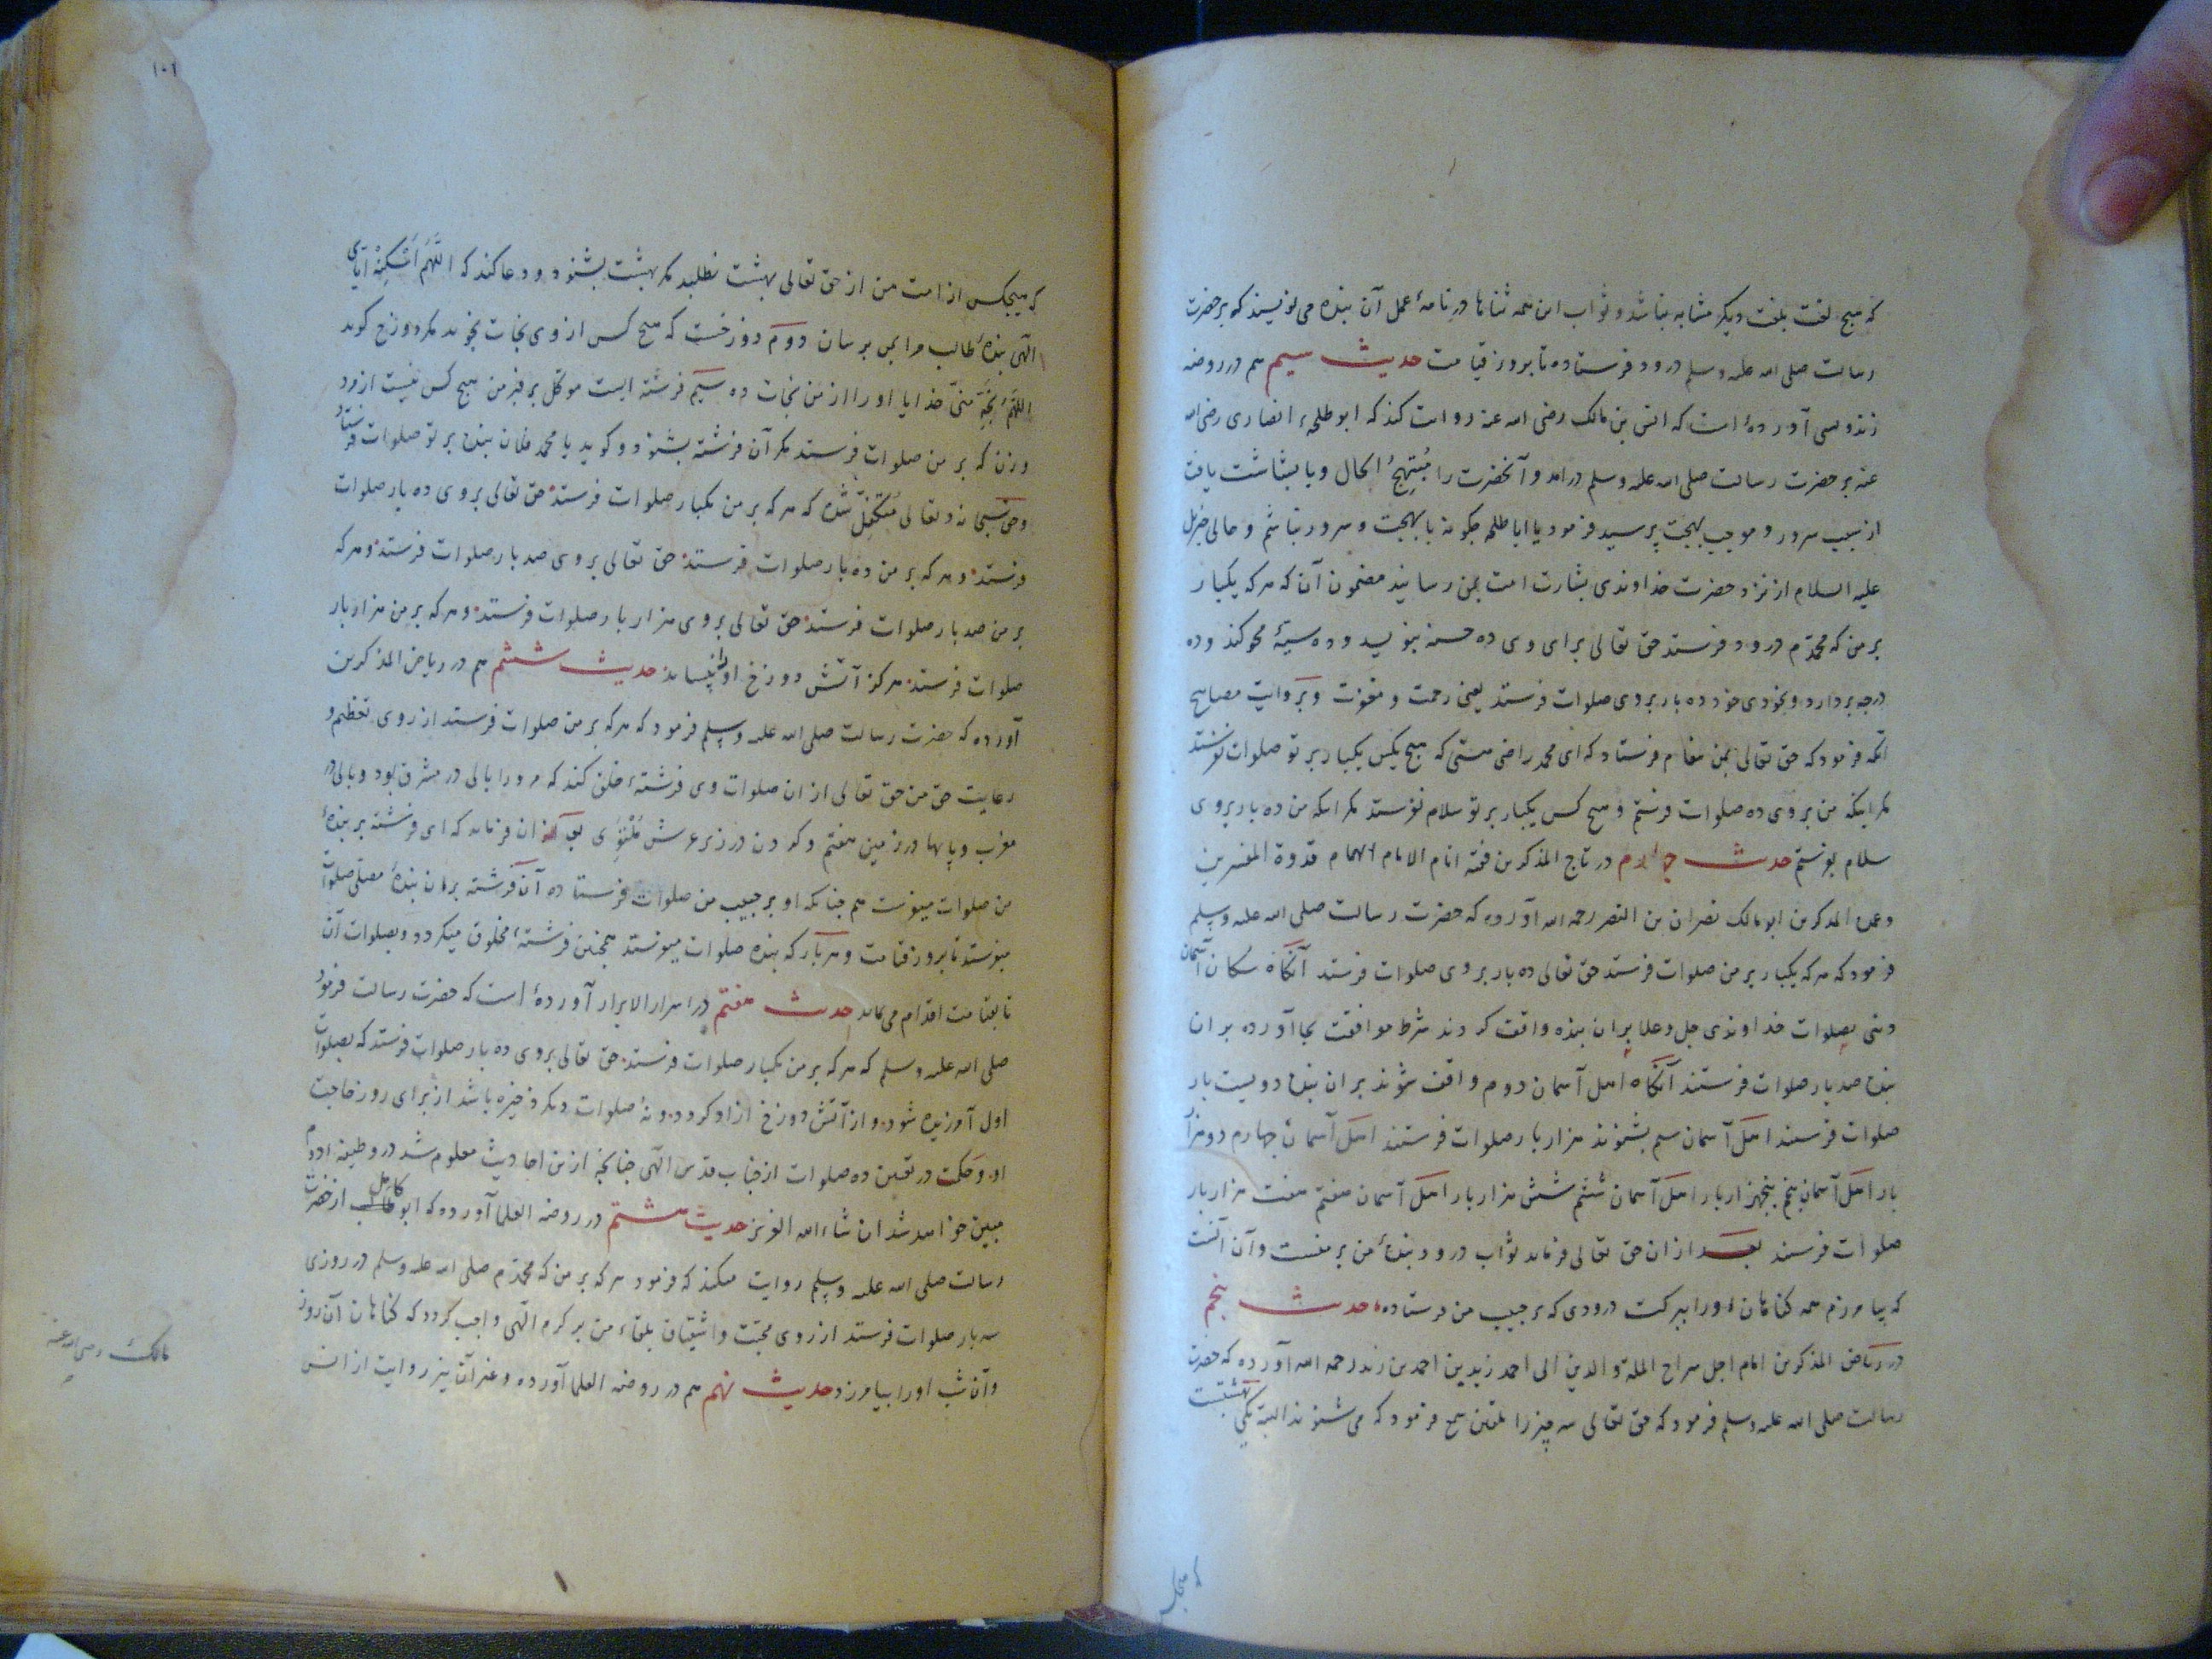 که هیچ لغت بلغت دیگر مشابه نباشد و ثواب این همه ثناها در نامۀ عمل آن بنده می نویسند که بر حضرت
رسالت صلی الله علیه وسلم درود فرستاده تا بروز قیامت حدیث سیم هم در روضه
زندویسی آورده است که انس بن مالک رضی الله عنه روایت کند که ابو طلحۀ انصاری رضی الله
عنه بر حضرت رسالت صلی الله علیه وسلم درامد و آنحضرت را مُبتهِجُ الحال و با بشاشت یافت
از سبب سرور و موجب بهجت پرسید فرمود یا ابا طلحه چکونه با بهجت و سرور نباشم و حالی جبرئیل
علیه السلام از نزد حضرت خداوندی بشارت امت بمن رسانید مضمون آن که هر که یکبار
بر من که محمدّم درود فرستد حق تعالی برای وی ده حسنه بنویسد و ده سیّئه محو کند و ده
درجه بردارد و بخودی خود ده بار بر وی صلوات فرستد یعنی رحمت و مغفرت و بروایت مصابیح
آنکه فرمود که حق تعالی بمن پیغام فرستاد که ای محمد راضی هستی که هیچ یکس یکبار بر تو صلوات نفرستد
مکر اینکه من بر وی ده صلوات فرستم و هیچ کس یکبار بر تو سلام نفرستد مکر اینکه من ده بار بر وی
سلام بفرستم حدیث چهارم در تاج المذکرین فخر انام الامام الهمام قدوة المفسرین
و عمدة المذکرین ابو مالک نصران بن النصر رحمه الله آورده که حضرت رسالت صلی الله علیه وسلم
فرمود که هر که یکبار بر من صلوات فرستد حق تعالی ده بار بر وی صلوات فرستد آنکاه سکان آسمان
دنیی بصلوات خداوندی جل و علا بر ان بنده واقف کردند شرط موافقت بجا آورده بر ان
بنده صد بار صلوات فرستند آنکاه اهل آسمان دوم واقف شوند بر ان بنده دویست بار
صلوات فرستند اهل آسمان سیم بشنوند هزار بار صلوات فرستند اهل آسمان چهارم دو هزار
بار اهل آسمان پنجم پنجهزار بار اهل آسمان ششم شش هزار بار اهل آسمان هفتم هفت هزار بار
صلوات فرستند بعد از ان حق تعالی فرماید ثواب درود بندۀ من بر منست و آن آنست
که بیامرزم همه کناهان او را ببرکت درودی که بر حبیب من فرستاده حدیث پنجم
در ریاض المذکرین امام اجل سراج الملة والدین ابی احمد زید بن احمد بن زید رحمه الله آورده که حضرت
رسالت صلی الله علیه وسلم فرمود که حق تعالی سه چیز را تلقین سمع فرمود که می شنوند البته یکی بهشتست
که هیچکس
۱۰۱
که هیچکس از امت من از حق تعالی بهشت نطلبد مکر بهشت بشنود و دعا کند که اللّهُمَ اَسْکِنْهُ اِیّای
الهی بندۀ طالب مرا بمن برسان دوم دوزخست که هیچ کس از وی نجات نجوید مکر دوزخ کوید
اللهُمَّ نَجِّهِ مِنّی خدایا او را از من نجات ده سیم فرشته ایست موکّل بر قبر من هیچ کس نیست از مرد
و زن که بر من صلوات فرستد مکر آن فرشته بشنود و کوید یا محمد فلان بنده بر تو صلوات فرستاد
و حق سبحانه و تعالی مُتکفّل شده که هر که بر من یکبار صلوات فرستد حق تعالی بر وی ده بار صلوات
فرستد و هر که بر من ده بار صلوات فرستد حق تعالی بر وی صد بار صلوات فرستد و هر که
بر من صد بار صلوات فرستد حق تعالی بر وی هزار بار صلوات فرستد و هر که بر من هزار بار
صلوات فرستد هرکز آتش دوزخ او را نپساید حدیث ششم هم در ریاض المذکرین
آورده که حضرت رسالت صلی الله علیه وسلم فرمود که هر که بر من صلوات فرستد از روی تعظیم و
رعایت حق من حق تعالی از ان صلوات وی فرشتۀ خلق کند که مر ورا بالی در مشرق بود و بالی در
مغرب و پایها در زمین هفتم و کردن در زیر عرش مُلتَوِی بعد از ان فرماید که ای فرشته بر بندۀ
من صلوات میفرست هم چنانکه او بر حبیب من صلوات فرستاده آن فرشته بران بندۀ مصلّی صلوات
میفرستد تا بروز قیامت و هر بار که بنده صلوات میفرستد همچنین فرشتۀ مخلوق میکردد و بصلوات آن
تا بقیامت اقدام می نماید حدیث هفتم در اسرار الابرار آورده است که حضرت رسالت فرمود
صلی الله علیه وسلم که هر که بر من یکبار صلوات فرستد حق تعالی بر وی ده بار صلوات فرستد که بصلوات
اول آمرزیده شود و از آتش دوزخ ازاد کردد و نُه صلوات دیکر ذخیره باشد از برای روز حاجت
او و حکمت در تعیین ده صلوات از جناب قدس الهی چنانچه ازین احادیث معلوم شد در وظیفه ادوم
مبین خواهد شد ان شاء الله العزیز حدیث هشتم در روضه العلما آورده که ابو کاهل از حضرت
رسالت صلی الله علیه وسلم روایت میکند که فرمود هر که بر من که محمدّم صلی الله علیه وسلم در روزی
سه بار صلوات فرستد از روی محبّت و اشتیاق بلقاء من بر کرم الهی واجب کردد که کناهان آن روز
و آن شب او را بیامرزد حدیث نهم هم در روضه العلما آورده و غیر آن نیز روایت از انس
مالک رضی الله عنه